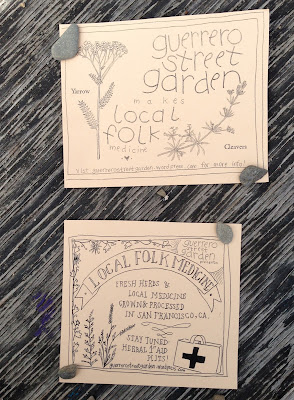 guerrero
street
garden
Yarrow
makes
local
folk
Cleavers
medicine
visit guerrerostreetgarden.wordpress.com for more info!
guerrero
street
garden
presents
LOCAL FOLK MEDICINE
FRESH HERBS &
LOCAL MEDICINE
GROWN & PROCESSED
IN SAN FRANCISCO, CA.
STAY TUNED:
HERBAL 1ST AID
KITS!
guerrerostreetgarden.wordpress.com